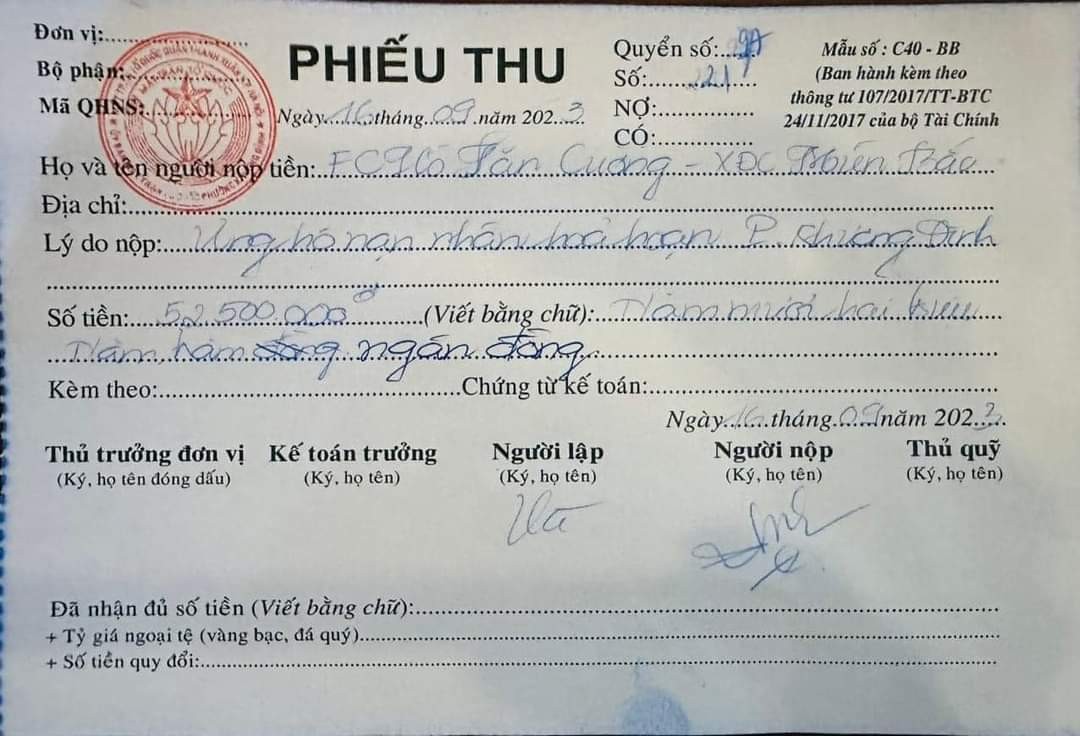 Đơn vị:
Bộ phận:
Mã QHNS:
PHIẾU THU
Ngày 16 tháng 09 năm 2023
Quyển số:
Số: 221
NỢ:
CÓ:
Mẫu số : C40 - BB
(Ban hành kèm theo
thông tư 107/2017/TT-BTC
24/11/2017 của bộ Tài Chính
Họ và tên người nộp tiền: FC Hồ Văn Cường - XĐC Miền Bắc
Địa chỉ:
Lý do nộp: Ủng hộ nạn nhân hoả hoạn P. Khương Đình
Số tiền: 52.500.000đ (Viết bằng chữ): Năm mươi hai triệu
Năm trăm đồng ngàn đồng
Kèm theo: Chứng từ kế toán:
Ngày 16 tháng 09 năm 2023
Thủ trưởng đơn vị Kế toán trưởng Người lập Người nộp Thủ quỹ
(Ký, họ tên đóng dấu) (Ký, họ tên) (Ký, họ tên) (Ký, họ tên) (Ký, họ tên)
Đã nhận đủ số tiền (Viết bằng chữ):
+ Tỷ giá ngoại tệ (vàng bạc, đá quý)
+ Số tiền quy đổi: